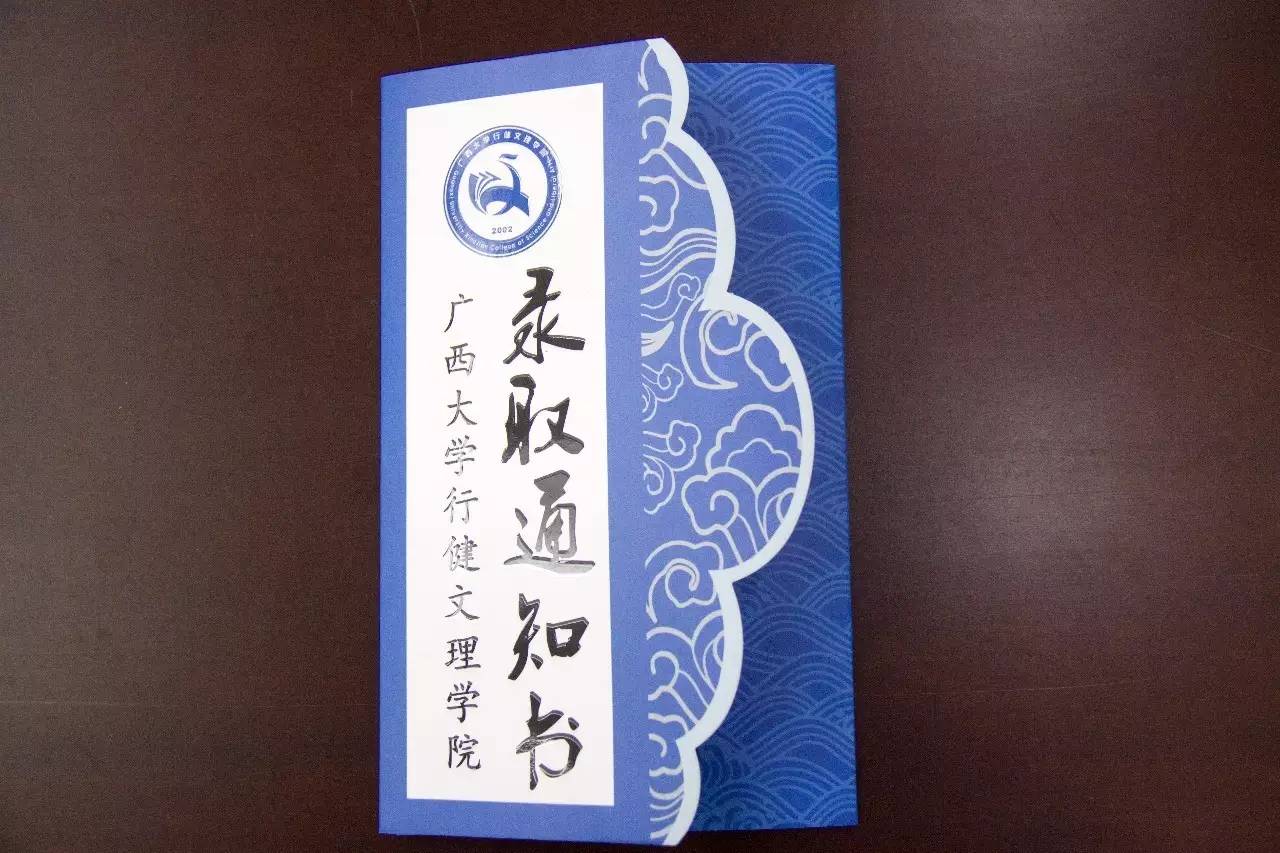 录取通知书
广西大学行健文理学院
广西大学行健文理学院
Guangxi University Xingjian College of Science and Liberal Arts
2002